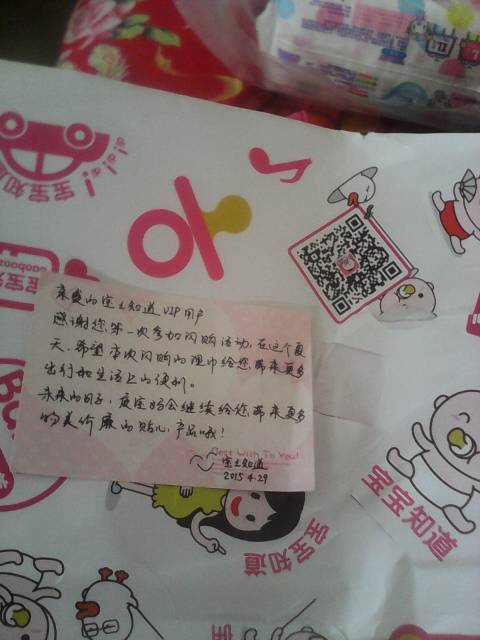 宝宝知道
亲爱的宝宝知道VIP用户
感谢您第一次参加闪购活动,在这个夏
天,希望本次闪购的理巾给您带来更多
出行和生活上的便利。
未来的日子,度宝妈会继续给您带来更多
的美价廉的贴心产品哦!
Best Wish To You!
宝宝知道
2015.4.29
宝宝知道
宝宝知道
宝宝